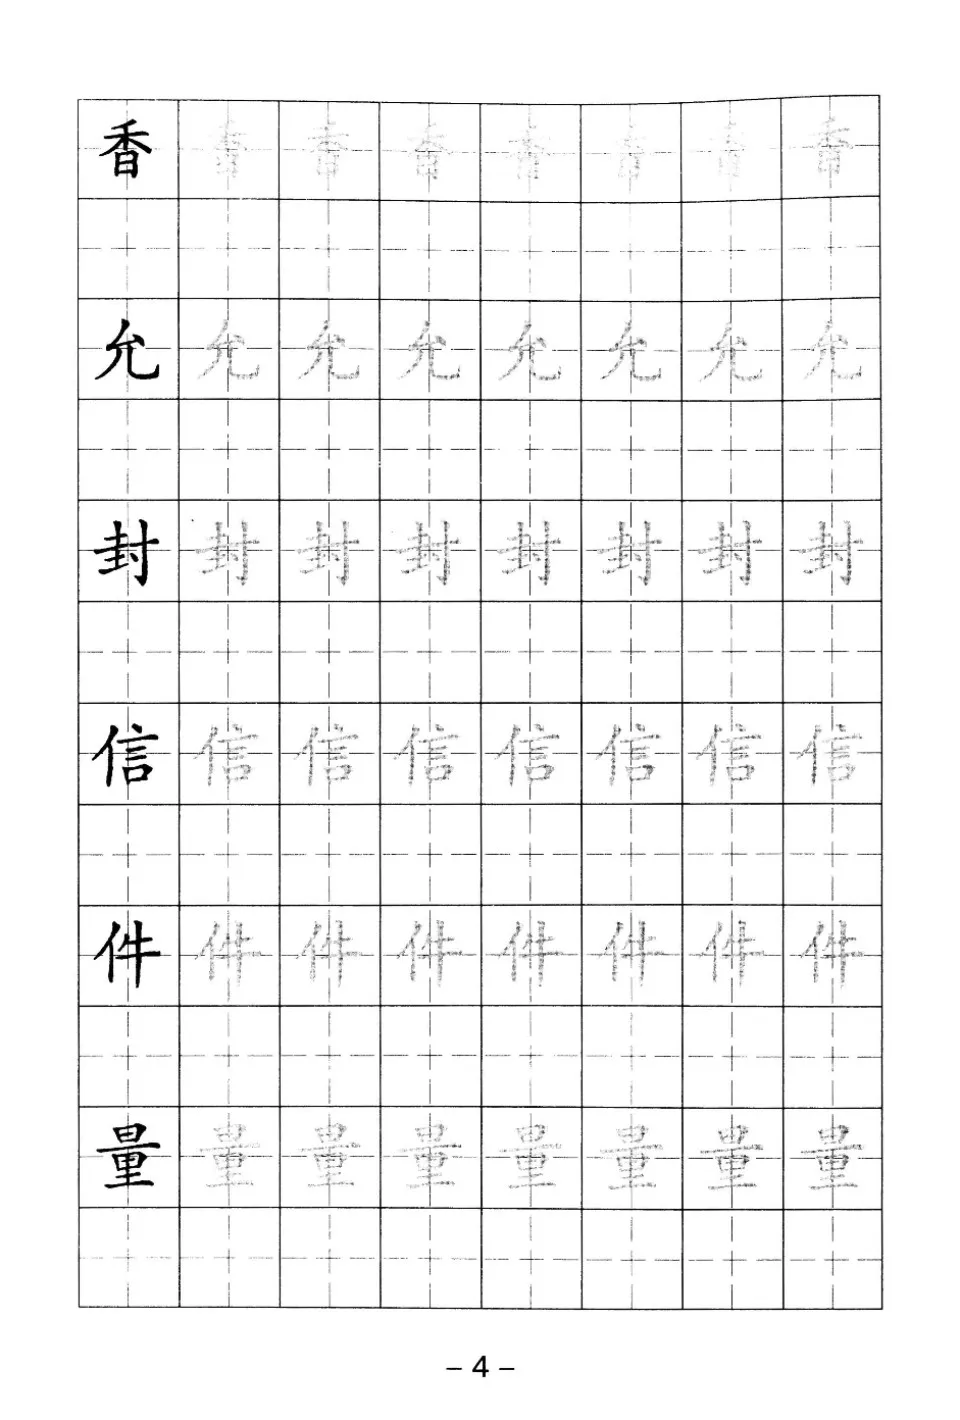 香 香 香 香 香 香 香 香
允 允 允 允 允 允 允 允
封 封 封 封 封 封 封 封
信 信 信 信 信 信 信 信
件 件 件 件 件 件 件 件
量 量 量 量 量 量 量 量
– 4 –